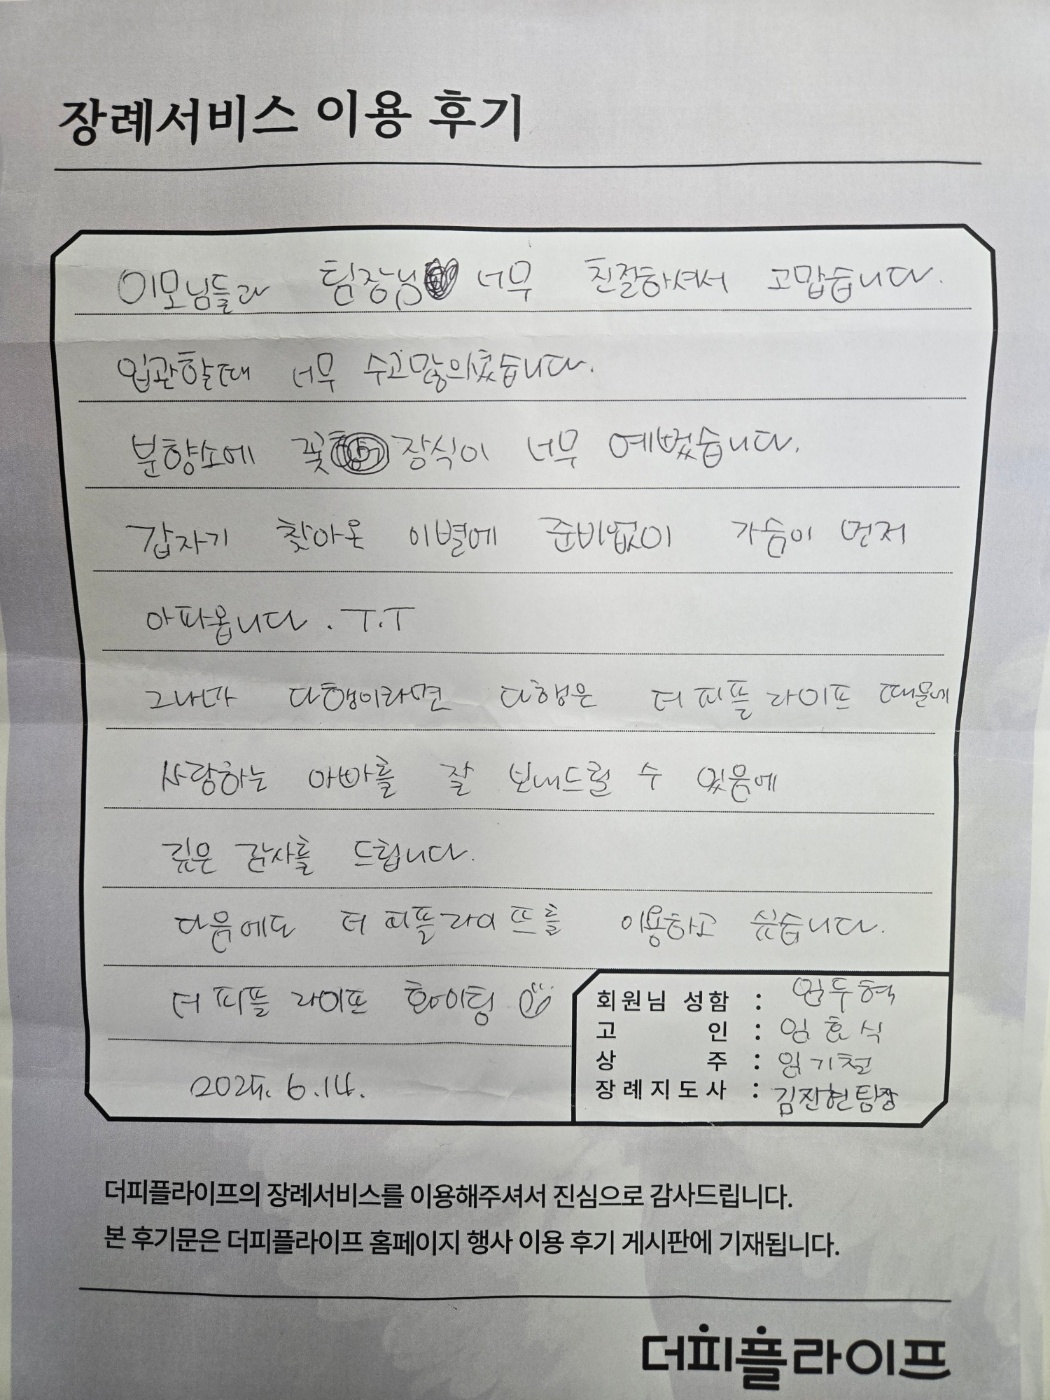 장례서비스 이용 후기
이모님들과 팀장님 너무 친절하셔서 고맙습니다.
입관할때 너무 수고많의셨습니다.
분향소에 꽃 장식이 너무 예뻤습니다.
갑자기 찾아온 이별에 준비없이 가슴이 먼저
아파옵니다. T.T
그나마 다행이라면 다행은 더피플라이프 때문에
사랑하는 아빠를 잘 보내드릴 수 있음에
깊은 감사를 드립니다.
다음에도 더피플라이프를 이용하고 싶습니다.
더피플라이프 화이팅
회원님 성함 : 임두혁
고 인 : 임호식
상 주 : 임기철
장례지도사 : 김진현팀장
2025. 6. 14.
더피플라이프의 장례서비스를 이용해주셔서 진심으로 감사드립니다.
본 후기문은 더피플라이프 홈페이지 행사 이용 후기 게시판에 기재됩니다.
더피플라이프